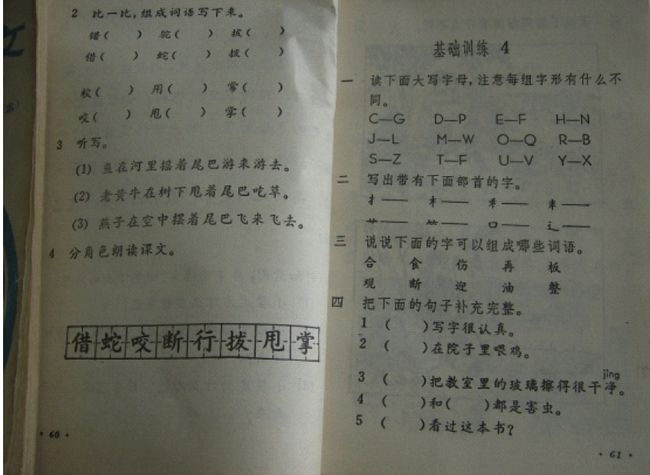 2 比一比，组成词语写下来。
错（ ） 驼（ ） 拔（ ）
借（ ） 蛇（ ） 拨（ ）
校（ ） 用（ ） 常（ ）
咬（ ） 甩（ ） 掌（ ）
3 听写。
(1) 鱼在河里摇着尾巴游来游去。
(2) 老黄牛在树下甩着尾巴吃草。
(3) 燕子在空中摆着尾巴飞来飞去。
4 分角色朗读课文。
借蛇咬断行拔甩掌
· 60 ·
基础训练 4
一 读下面大写字母，注意每组字形有什么不
同。
C—G D—P E—F H—N
J—L M—W O—Q R—B
S—Z T—F U—V Y—X
二 写出带有下面部首的字。
扌— 木— 禾— 车—
艹— 竹— 口— 辶—
三 说说下面的字可以组成哪些词语。
合 食 伤 再 板
观 断 迎 油 整
四 把下面的句子补充完整。
1 （ ）写字很认真。
2 （ ）在院子里喂鸡。
jìng
3 （ ）把教室里的玻璃擦得很干净。
4 （ ）和（ ）都是害虫。
5 （ ）看过这本书？
· 61 ·